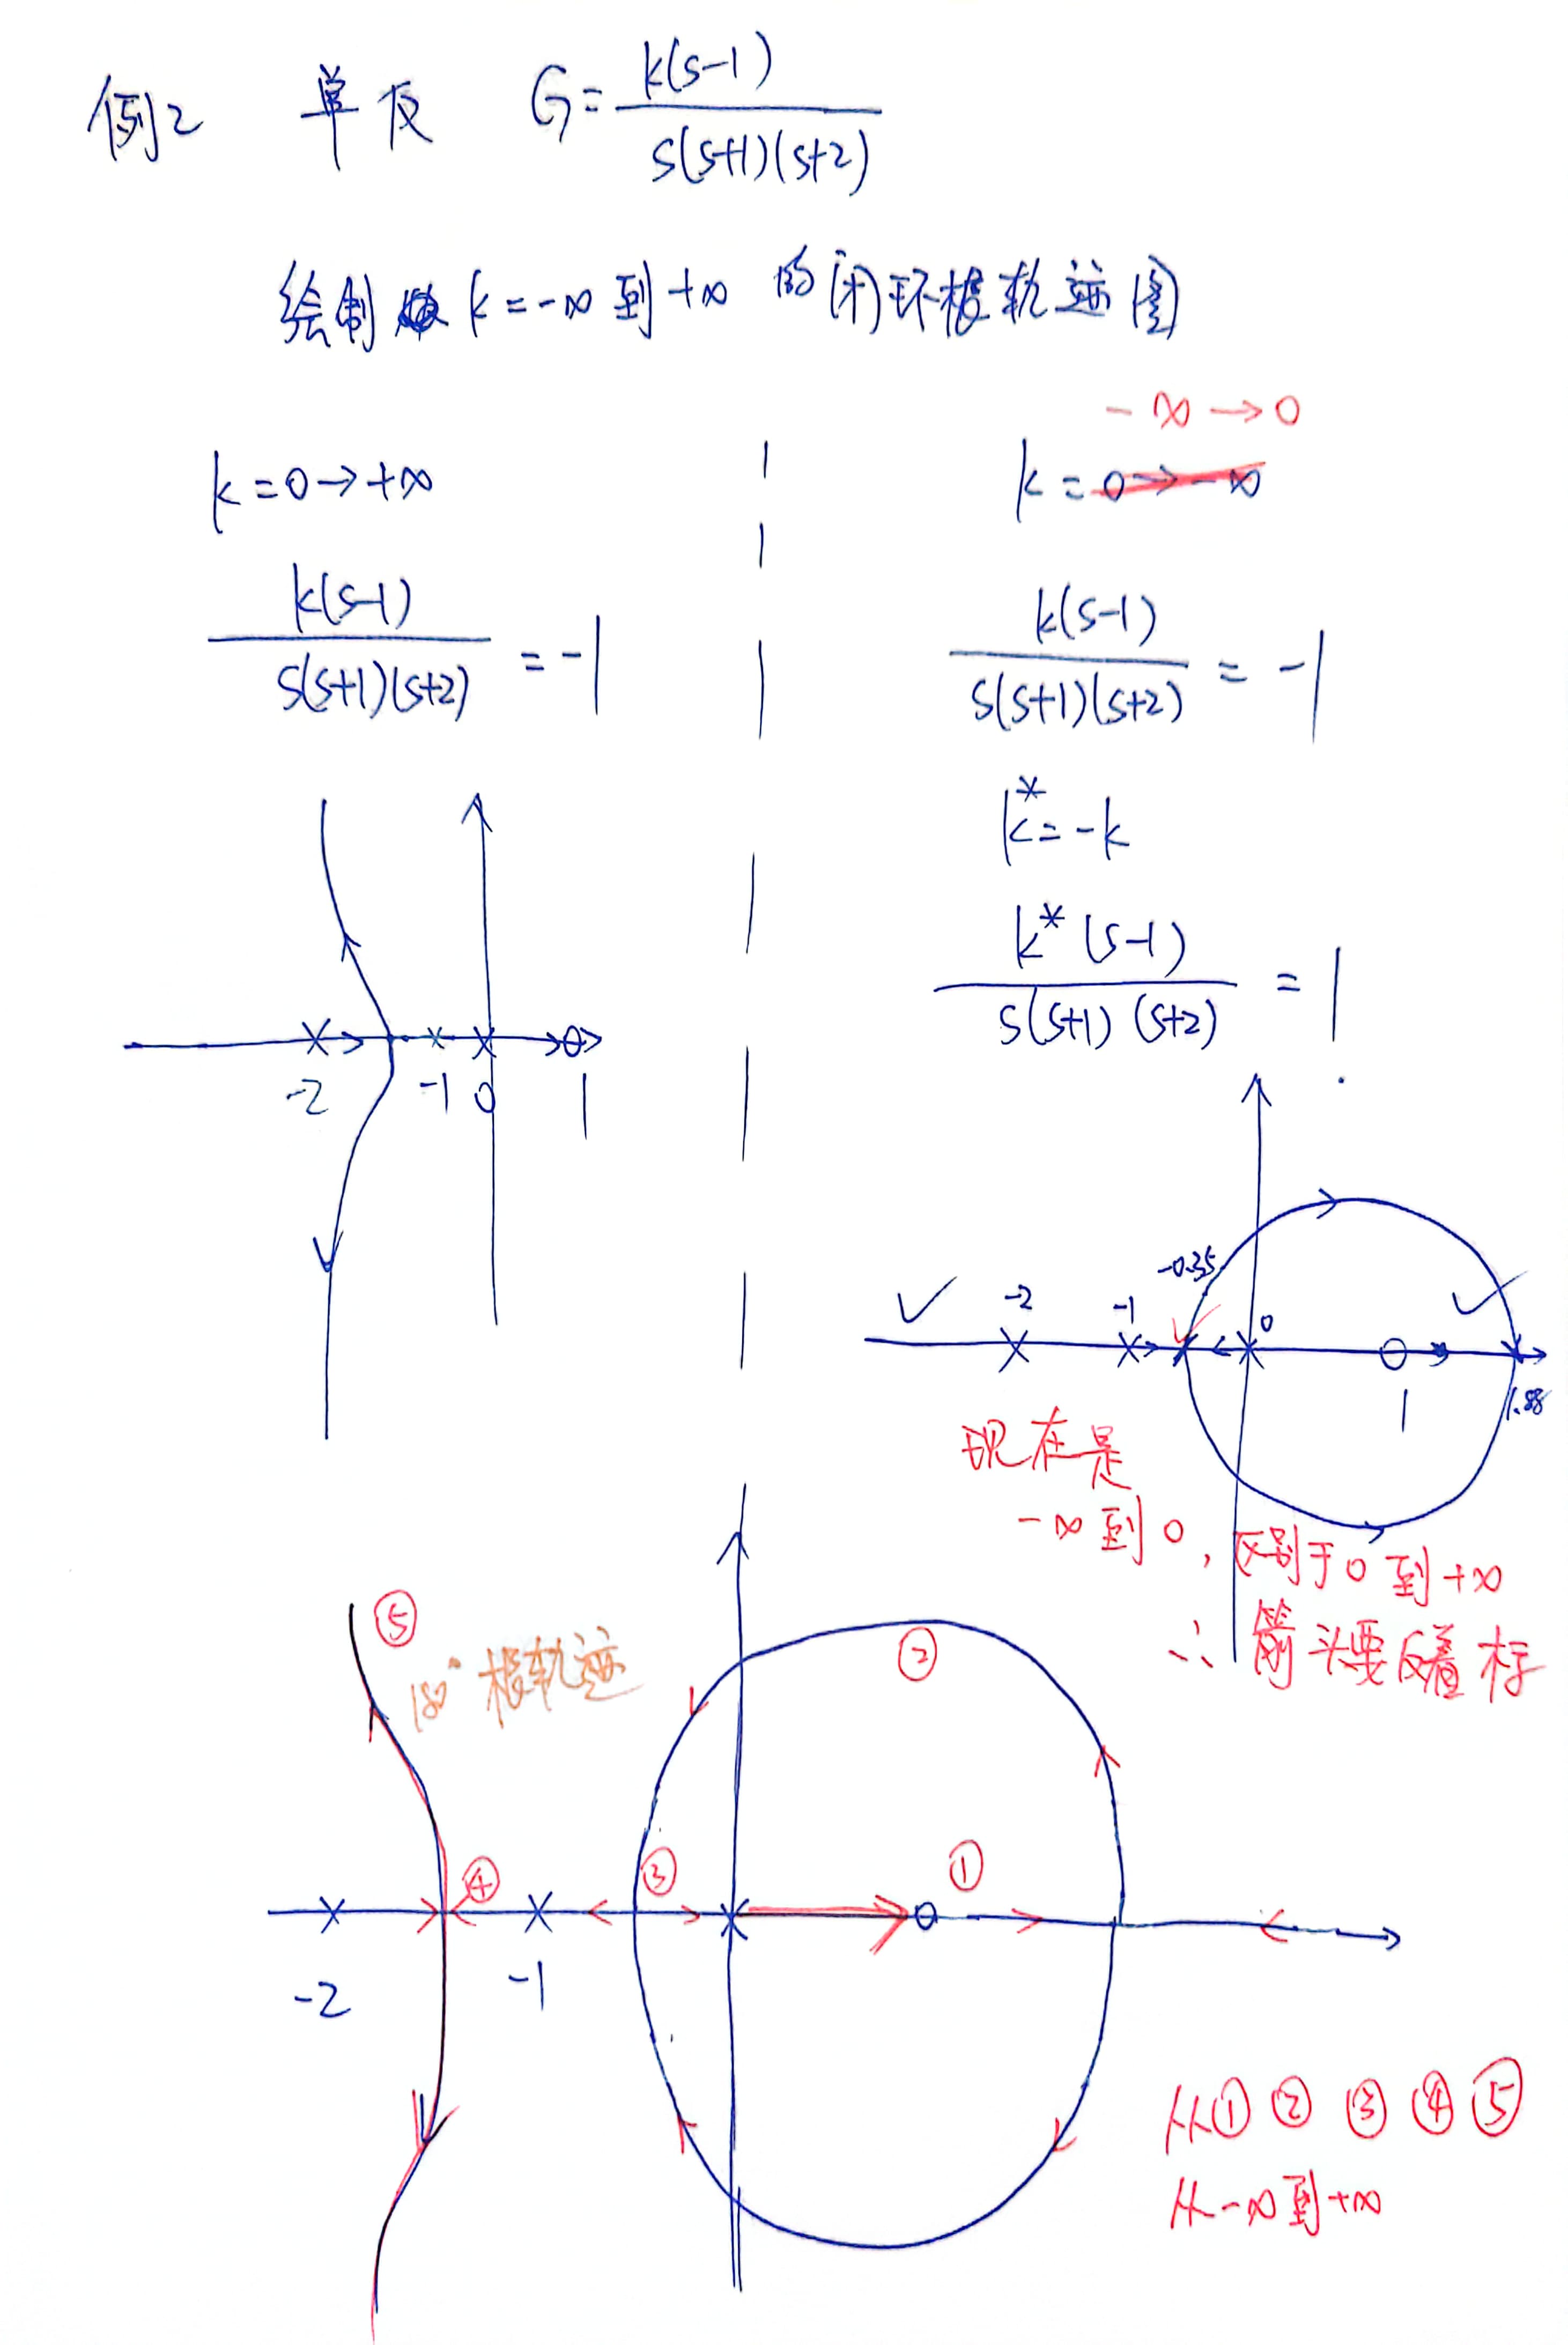 例2 单反 G = k(s-1) / s(s+1)(s+2)
绘制 k = -∞ 到 +∞ 的闭环根轨迹图
k = 0 → +∞
k(s-1) / s(s+1)(s+2) = -1
-2 -1 0 1
-∞ → 0
k = 0 → -∞
k(s-1) / s(s+1)(s+2) = -1
k* = -k
k*(s-1) / s(s+1)(s+2) = 1
-2 -1 -0.35 0 1 1.88
现在是
-∞ 到 0, 区别于 0 到 +∞
∴ 箭头要反着标
⑤ 180° 根轨迹 ②
④ ③ ①
-2 -1
从 ① ② ③ ④ ⑤
从 -∞ 到 +∞